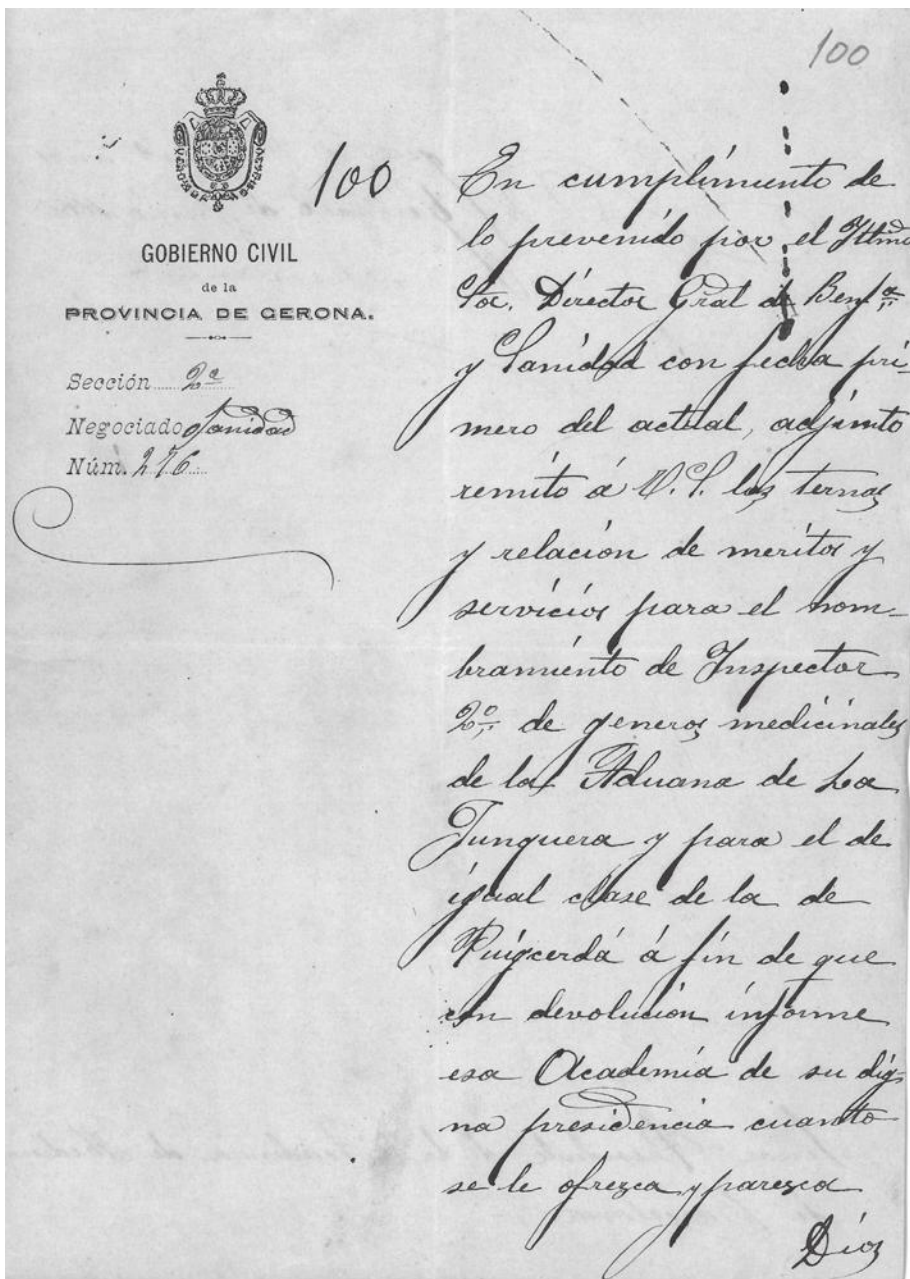 100
100
GOBIERNO CIVIL
de la
PROVINCIA DE GERONA.
Sección 2ª
Negociado Sanidad
Núm. 276
En cumplimiento de
lo prevenido por el Iltmo
Sor. Director Gral de Benfª
y Sanidad con fecha pri-
mero del actual, adjunto
remito á V. S. las ternas
y relación de meritos y
servicios para el nom-
bramiento de Inspector
2º de generos medicinales
de la Aduana de La
Junquera y para el de
igual clase de la de
Puigcerdá á fin de que
con devolución informe
esa Academia de su dig-
na presidencia cuanto
se le ofrezca y paresca
Dios